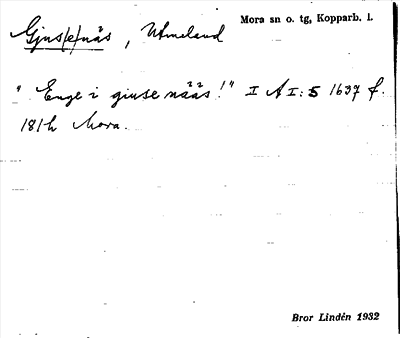 Mora sn o. tg, Kopparb. l.
Gjus(e)näs, Utmeland
"Enge i giuse nääs!" I A I: 5 1637 f.
181h Mora.
Bror Lindén 1932